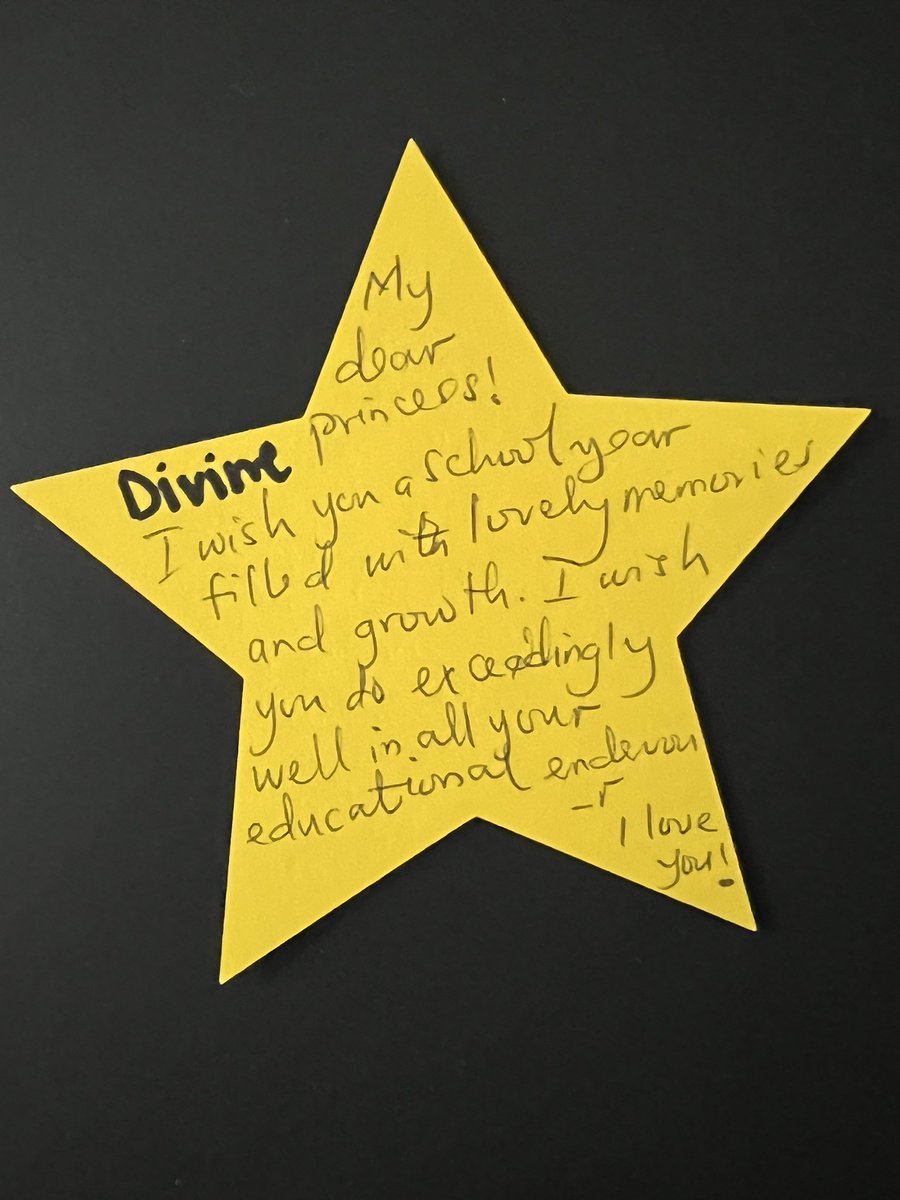 My
dear
princess!
Divine
I wish you a school year
filled with lovely memories
and growth. I wish
you do exceedingly
well in all your
educational endevou
-r
I love
you!